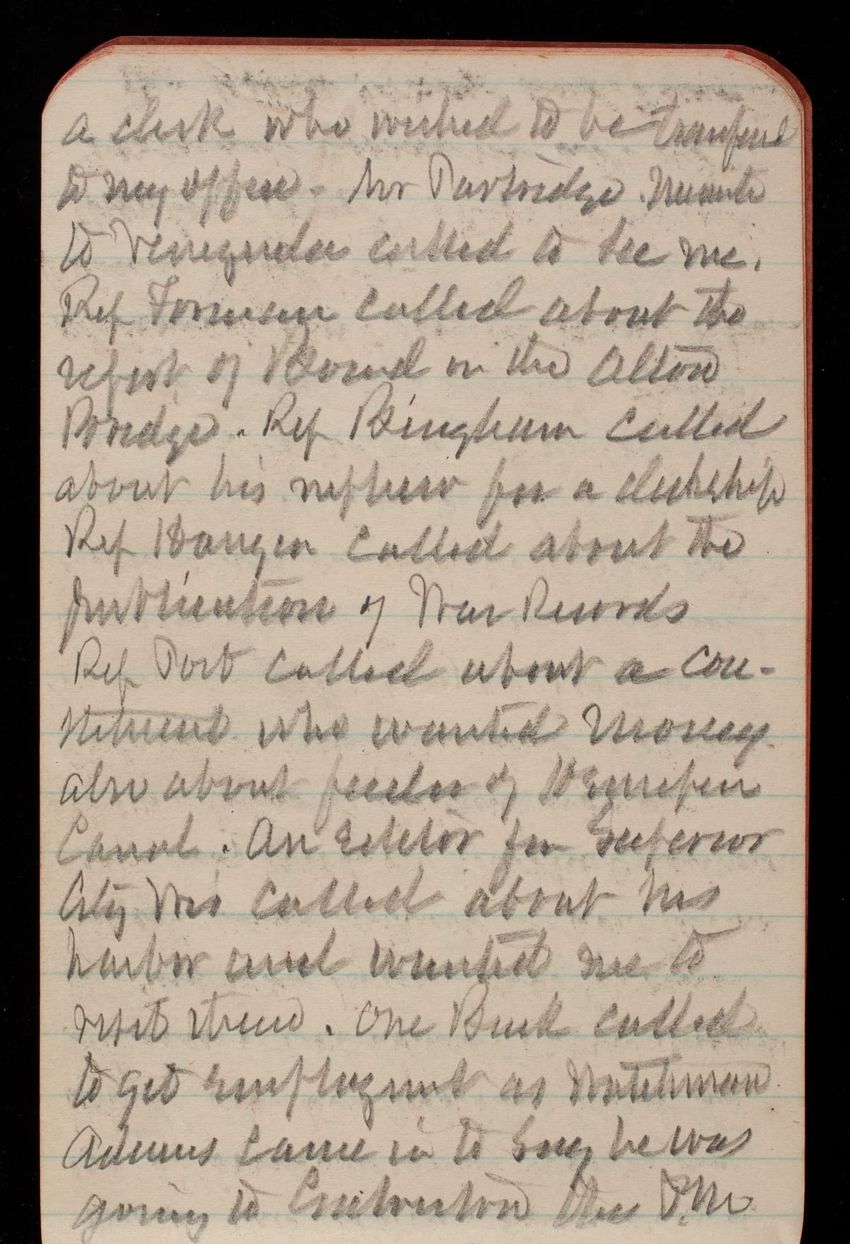 a clerk who wished to be transferred
to my office - Mr Partridge Minister
to Venezuela called to see me.
Rep Forman called about the
report of Board on the Alton
Bridge. Rep Bingham called
about his nephew for a clerkship
Rep Haugen called about the
publication of War Records
Rep Post called about a con-
stituent who wanted money
also about feeder of Hennepin
Canal. An Editor for Superior
City Wis called about his
harbor and wanted me to
visit there. One Buck called
to get employment as Watchman
Adams came in to say he was
going to the P.M.